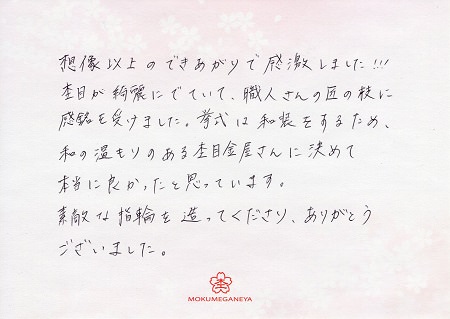 想像以上のできあがりで感激しました!!!
杢目が綺麗にでていて、職人さんの匠の技に
感銘を受けました。挙式は和装をするため、
和の温もりのある杢目金屋さんに決めて
本当に良かったと思っています。
素敵な指輪を造ってくださり、ありがとう
ございました。
MOKUMEGANEYA